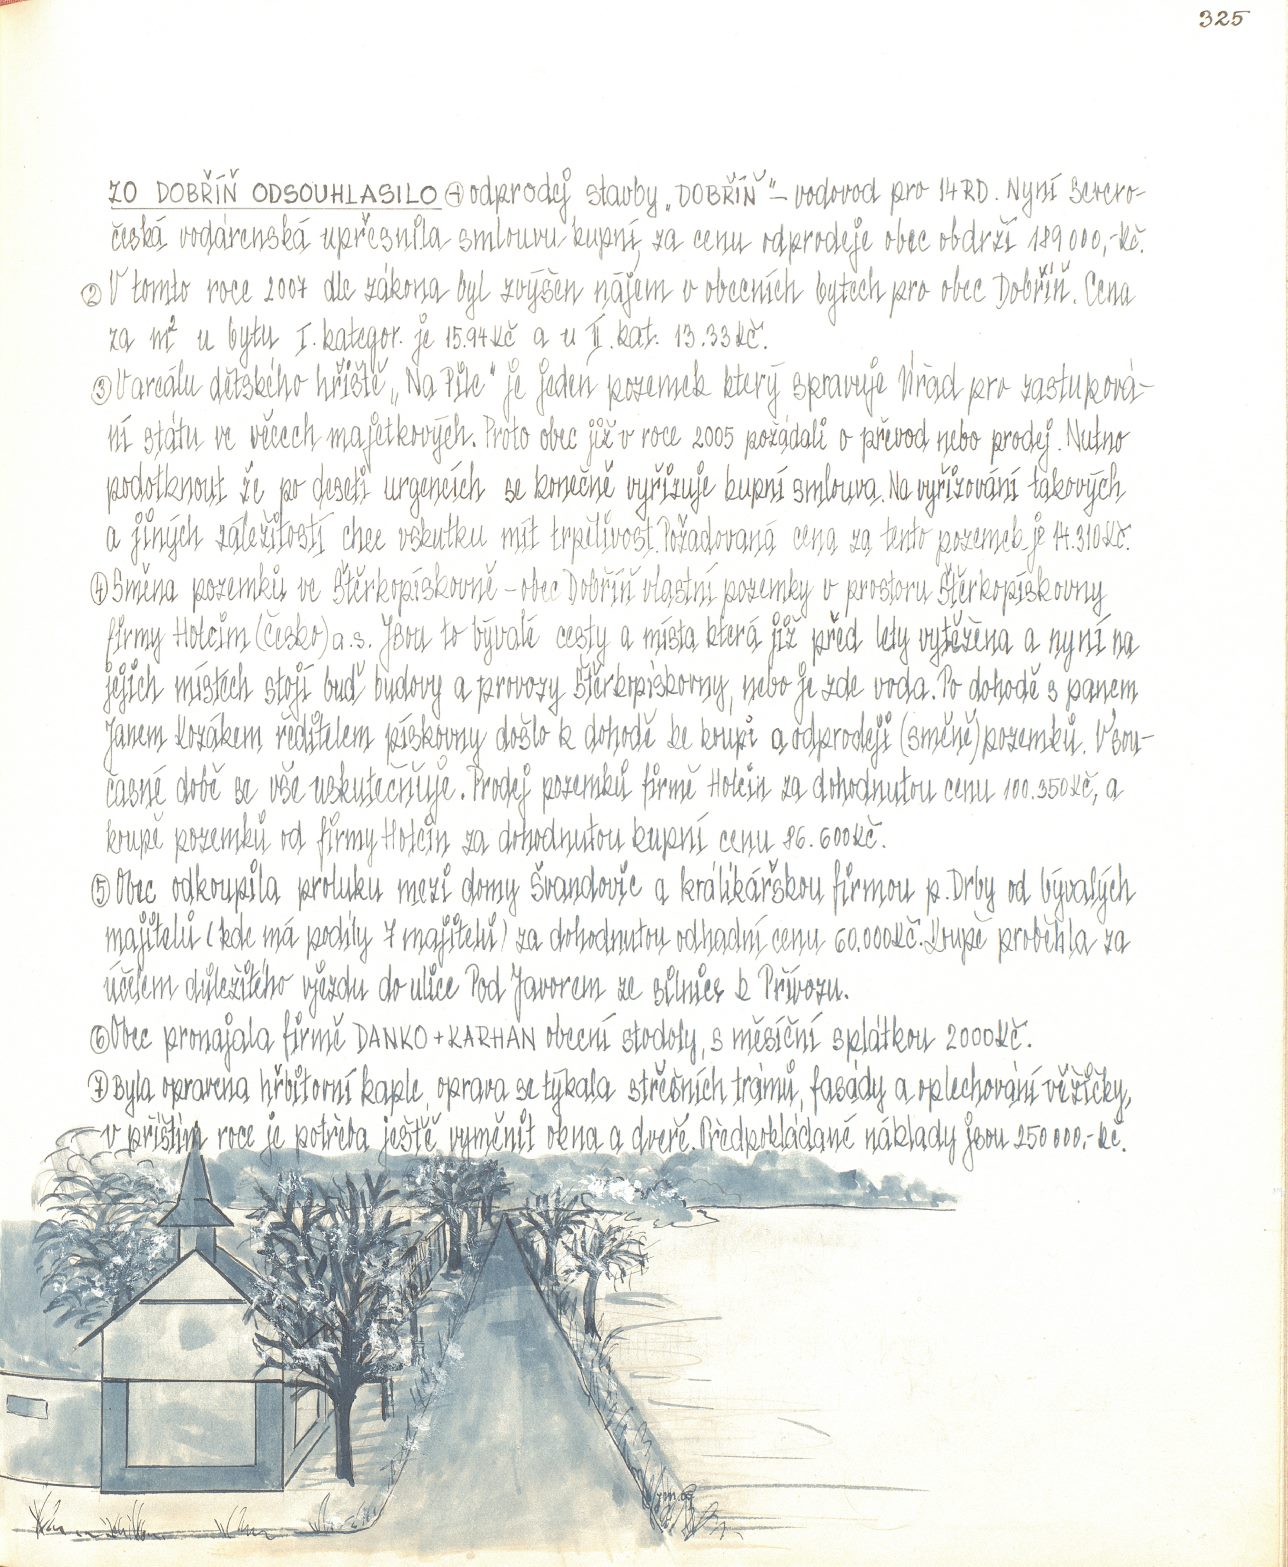 325
ZO DOBŘÍŇ ODSOUHLASILO ① odprodej stavby „DOBŘÍŇ" – vodovod pro 14 RD. Nyní Severo-
česká vodárenská upřesnila smlouvu kupní, za cenu odprodeje obec obdrží 189 000,- Kč.
② V tomto roce 2007 dle zákona byl zvýšen nájem v obecních bytech pro obec Dobříň. Cena
za m² u bytu I. kategor. je 15.94 Kč a u II. kat. 13.33 Kč.
③ V areálu dětského hřiště „Na Pile" je jeden pozemek který spravuje Úřad pro zastupová-
ní státu ve věcech majetkových. Proto obec již v roce 2005 požádali o převod nebo prodej. Nutno
podotknout že po deseti urgencích se konečně vyřizuje kupní smlouva. Na vyřizování takových
a jiných záležitostí chce vskutku mít trpělivost. Požadovaná cena za tento pozemek je 14.310 Kč.
④ Směna pozemků ve Štěrkopískovně – obec Dobříň vlastní pozemky v prostoru Štěrkopískovny
firmy Holcim (Česko) a.s. Jsou to bývalé cesty a místa která již před lety vytěžena a nyní na
jejich místech stojí buď budovy a provozy Štěrkopískovny, nebo je zde voda. Po dohodě s panem
Janem Kozákem ředitelem pískovny došlo k dohodě ke koupi a odprodeji (směně) pozemků. V sou-
časné době se vše uskutečňuje. Prodej pozemků firmě Holcin za dohodnutou cenu 100.350 Kč, a
koupě pozemků od firmy Holcin za dohodnutou kupní cenu 86.600 Kč.
⑤ Obec odkoupila proluku mezi domy Švandovic a králikářskou firmou p. Drby od bývalých
majitelů (kde má podíly 7 majitelů) za dohodnutou odhadní cenu 60.000 Kč. Koupě proběhla za
účelem důležitého vjezdu do ulice Pod Javorem ze silnice k Přívozu.
⑥ Obec pronajala firmě DANKO + KARHAN obecní stodoly, s měsíční splátkou 2000 Kč.
⑦ Byla opravena hřbitovní kaple, oprava se týkala střešních trámů, fasády a oplechování věžičky,
v příštím roce je potřeba ještě vyměnit okna a dveře. Předpokládané náklady jsou 250 000,- Kč.